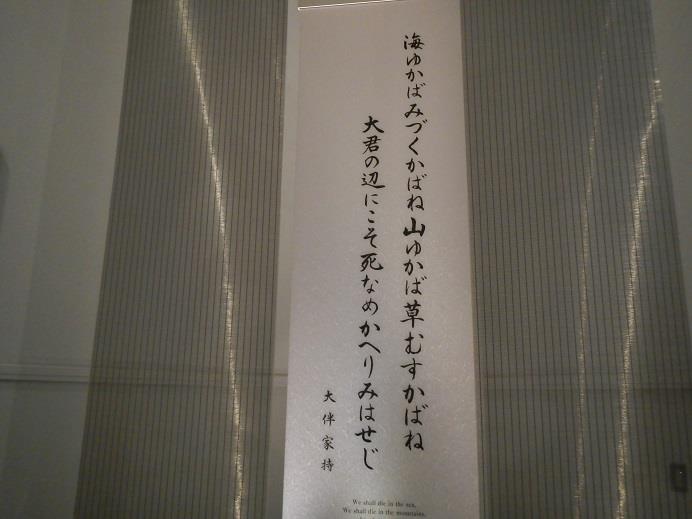 海ゆかばみづくかばね山ゆかば草むすかばね
大君の辺にこそ死なめかへりみはせじ
大伴家持
We shall die in the sea,
We shall die in the mountains,